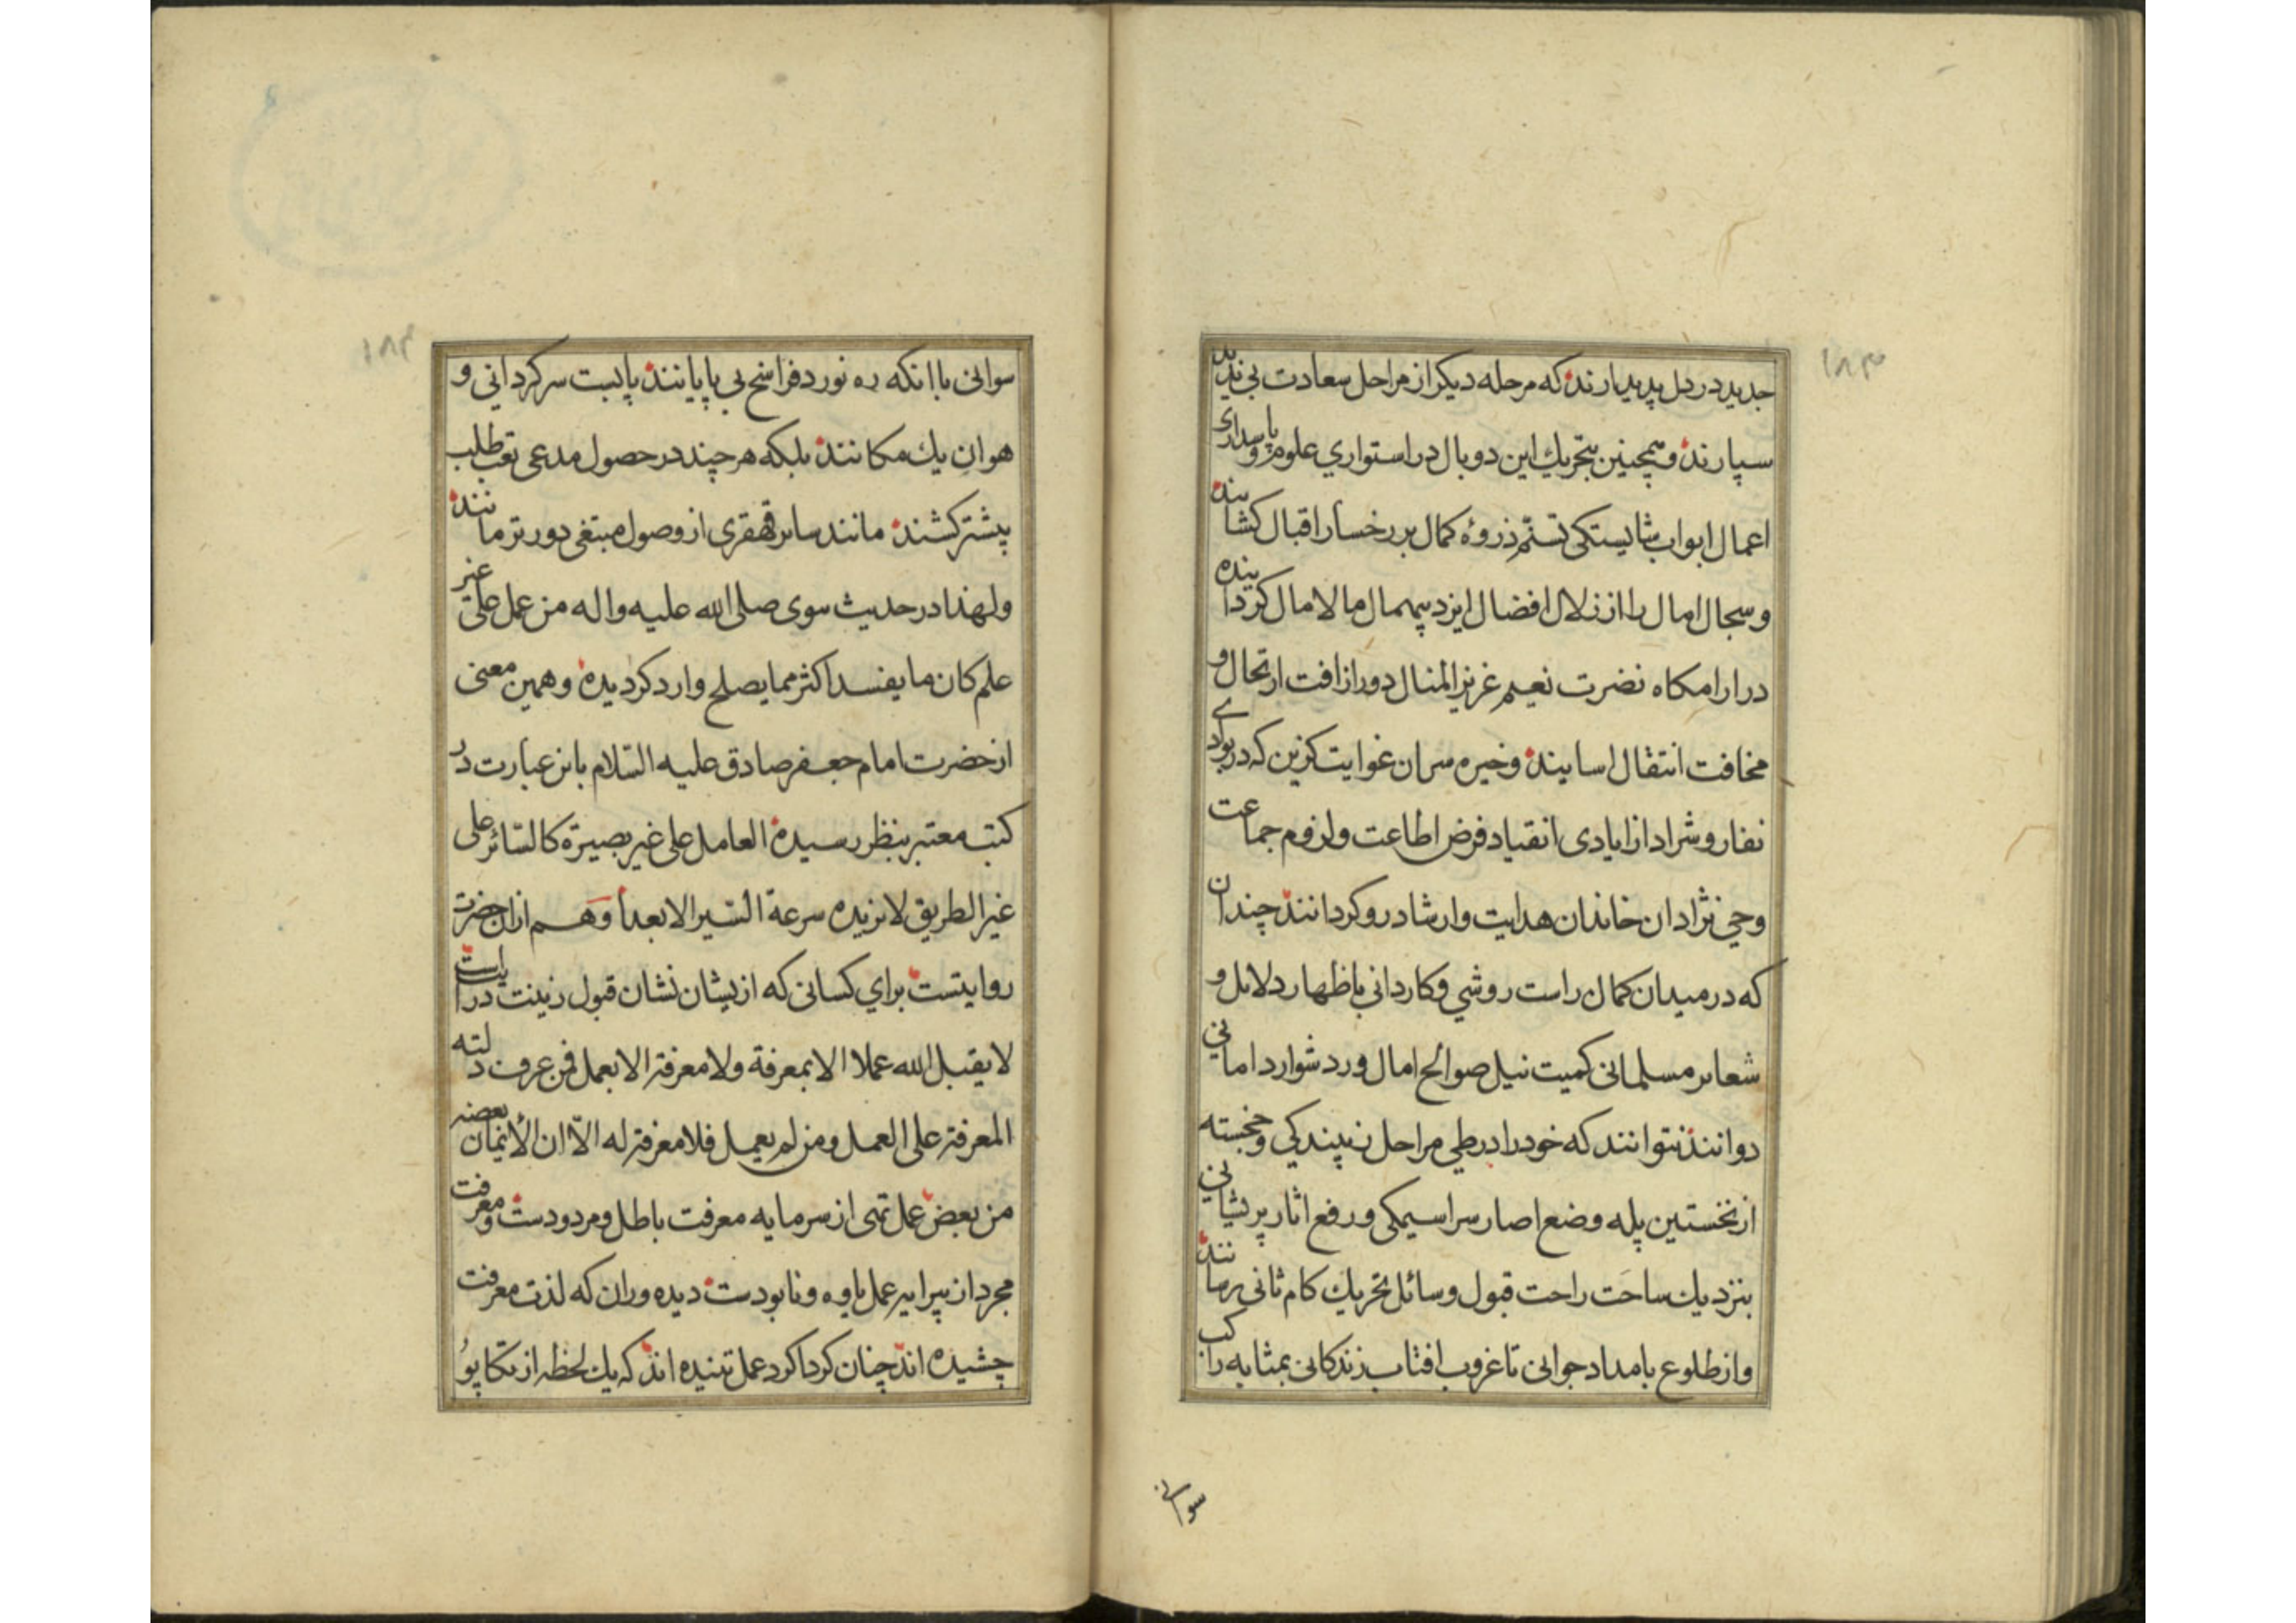 ۱۸۳
جدید در دل پدید ارند که مرحله دیکر از مراحل سعادت بی ندید
سپارند و همچنین بتحریك این دو بال در استواری علوم و پایداری
اعمال ابواب شایستکی تسنّم ذروهٔ کمال بر رخسار اقبال کشایند
و سجال امال را از زلال افضال ایزد بیهمال مالامال کردانیده
در ارامکاه نضرت نعیم غزیز المنال دور از افت ارتحال و
مخافت انتقال اسایند و خیره سران غوایت کزین که در بوادی
نفار و شراد از ایادی انقیاد فرض اطاعت و لزوم جماعت
وحی نژادان خاندان هدایت و ارشاد رو کردانند چندان
که در میدان کمال راست روشی و کاردانی باظهار دلایل و
شعایر مسلمانی کمیت نیل صوالح امال و رد شوارد امانی
دوانند نتوانند که خود را در طی مراحل نپیندکی و خجسته
از نخستین پله وضع اصار سراسیمکی و رفع اثار پریشانی
بنزدیك ساحت راحت قبول وسائل تحریك کام ثانی برمانند
و از طلوع بامداد جوانی تا غروب افتاب زندکانی بمثابه راکب
سوانی
۱۸۴
سوانی با انکه ره نورد فراسخ بی پایانند پابست سرکردانی و
هوان یك مکانند بلکه هر چند در حصول مدعی تعب طلب
بیشتر کشند مانند سایر قهقری از وصول مبتغی دورتر مانند
ولهذا در حدیث نبوی صلی الله علیه واله من عمل علی غیر
علم کان ما یفسد اکثر مما یصلح وارد کردیده و همین معنی
از حضرت امام جعفر صادق علیه السّلام باین عبارت در
کتب معتبر بنظر رسیده العامل علی غیر بصیرة کالسّائر علی
غیر الطریق لا یزیده سرعة السّیر الا بعداً وهم ازان حضرت
روایتست برای کسانی که ازیشان نشان قبول زینت دراست
لا یقبل الله عملا الا بمعرفة ولا معرفة الا بعمل فمن عرف دلته
المعرفة علی العمل و من لم یعمل فلا معرفة له الّا ان الأیمان بعضه
من بعض عمل تهی از سرمایه معرفت باطل و مردودست و معرفت
مجرد از پیرایه عمل یاوه و نابودست دیده وران که لذت معرفت
چشیده اند چنان کرداکرد عمل تنیده اند که یك لحظه از تکاپو